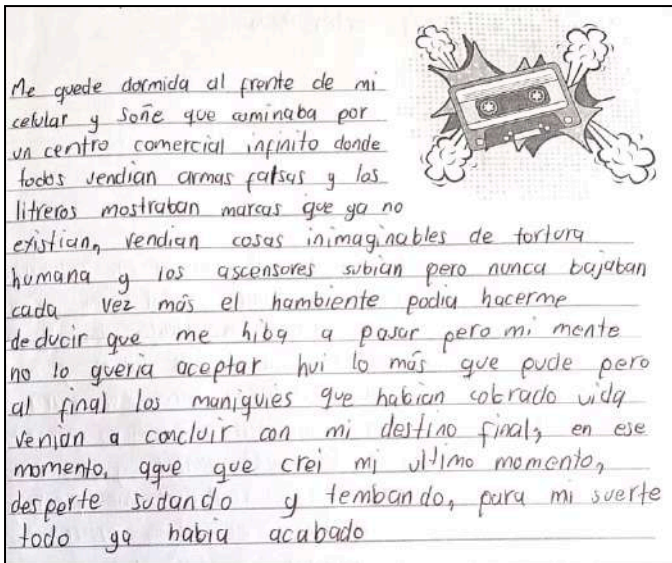 Me quede dormida al frente de mi
celular y soñe que caminaba por
un centro comercial infinito donde
todos vendian armas falsas y los
litreros mostraban marcas que ya no
existian, vendian cosas inimaginables de tortura
humana y los ascensores subian pero nunca bajaban
cada vez más el hambiente podia hacerme
deducir que me hiba a pasar pero mi mente
no lo queria aceptar hui lo más que pude pero
al final los maniquies que habian cobrado vida
venian a concluir con mi destino final, en ese
momento, que crei mi ultimo momento,
desperte sudando y tembando, para mi suerte
todo ya habia acabado